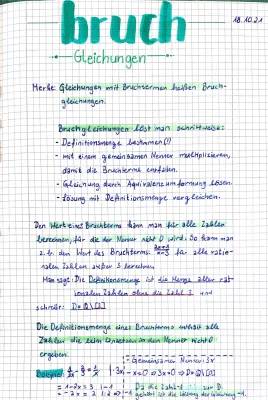 18.10.21
bruch
Gleichungen
Merke: Gleichungen mit Bruchtermen heißen Bruch-
gleichungen.
Bruchgleichungen löst man schrittweise:
- Definitionsmenge bestimmen(!)
- mit einem gemeinsamen Nenner multiplizieren,
damit die Bruchterme entfallen.
- Gleichung durch Äquivalenzumformung lösen.
- Lösung mit Definitionsmenge vergleichen.
Den Wert eines Bruchterms kann man für alle Zahlen
berechnen, für die der Nenner nicht 0 wird. So kann man
z.B. den Wert des Bruchterms für alle ratio-
nalen Zahlen außer 3 berechnen.
Man sagt: Die Definitionsmenge ist die Menge aller rat-
ionalen Zahlen ohne die Zahl 3 und
schreibt: D=Q\{3}
Die Definitionsmenge eines Bruchterms enthält alle
Zahlen, die beim Einsetzen in den Nenner nicht 0
ergeben.
- Gemeinsamer Nenner: 3x
Beispiel: |·3x - x=0 ⇒ D=Q\{0}
= 1-2x=3 |-1 Da die Zahl -1 zur D
= -2x=2 |:2 ⇒ -1 gehört ist die Lösung der Gleichung -1.